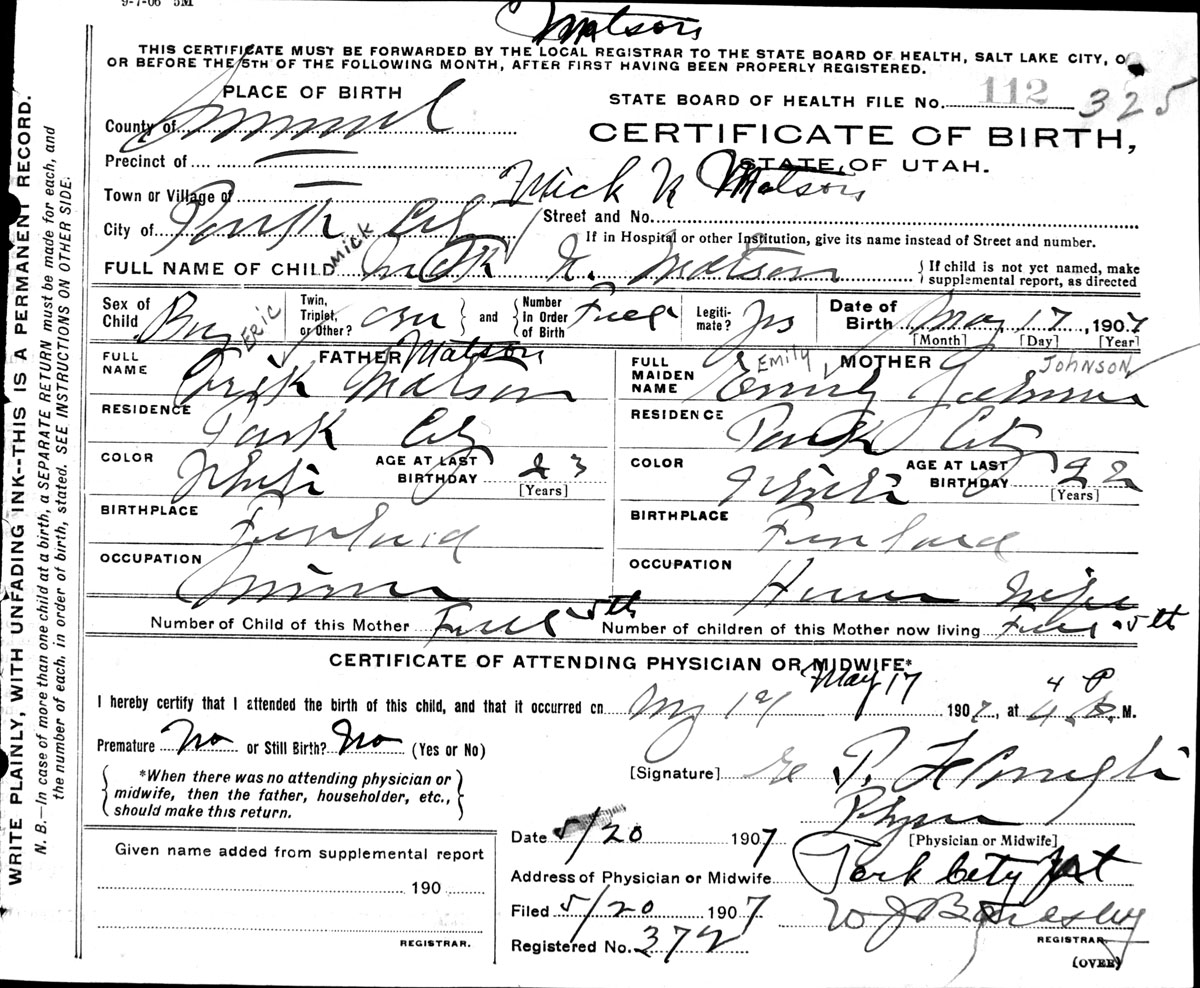 9-7-06 5M
Matson
THIS CERTIFICATE MUST BE FORWARDED BY THE LOCAL REGISTRAR TO THE STATE BOARD OF HEALTH, SALT LAKE CITY, O
OR BEFORE THE 5TH OF THE FOLLOWING MONTH, AFTER FIRST HAVING BEEN PROPERLY REGISTERED.
PLACE OF BIRTH
STATE BOARD OF HEALTH FILE No. 112 325
County of Summit
CERTIFICATE OF BIRTH,
Precinct of —
STATE OF UTAH.
Town or Village of —
Mick N Matson
City of Park City
Street and No.
If in Hospital or other Institution, give its name instead of Street and number.
MICK
FULL NAME OF CHILD Mick N. Matson
If child is not yet named, make supplemental report, as directed
Sex of Child Boy
Twin, Triplet, or Other?
and
Number In Order of Birth
Legiti-mate? Yes
Date of Birth May 17, 1907
[Month] [Day] [Year]
ERIC
FULL NAME
FATHER Matson
Erik Matson
FULL MAIDEN NAME
Emily, MOTHER JOHNSON
Emily Johnson
RESIDENCE Park City
RESIDENCE Park City
COLOR White
AGE AT LAST BIRTHDAY 23
[Years]
COLOR White
AGE AT LAST BIRTHDAY 22
[Years]
BIRTHPLACE Finland
BIRTHPLACE Finland
OCCUPATION Miner
OCCUPATION House Wife
Number of Child of this Mother 5th
Number of children of this Mother now living 5th
CERTIFICATE OF ATTENDING PHYSICIAN OR MIDWIFE*
May 17
I hereby certify that I attended the birth of this child, and that it occurred on 1907, at 4 P. M.
Premature No or Still Birth? No (Yes or No)
*When there was no attending physician or midwife, then the father, householder, etc., should make this return.
[Signature]
[Physician or Midwife]
Date 5/20 1907
Given name added from supplemental report
Address of Physician or Midwife Park City Ut
190
Filed 5/20 1907
REGISTRAR.
W J
REGISTRAR
Registered No. 372
(OVER)
WRITE PLAINLY, WITH UNFADING INK--THIS IS A PERMANENT RECORD.
N. B.—In case of more than one child at a birth, a SEPARATE RETURN must be made for each, and
the number of each, in order of birth, stated. SEE INSTRUCTIONS ON OTHER SIDE.